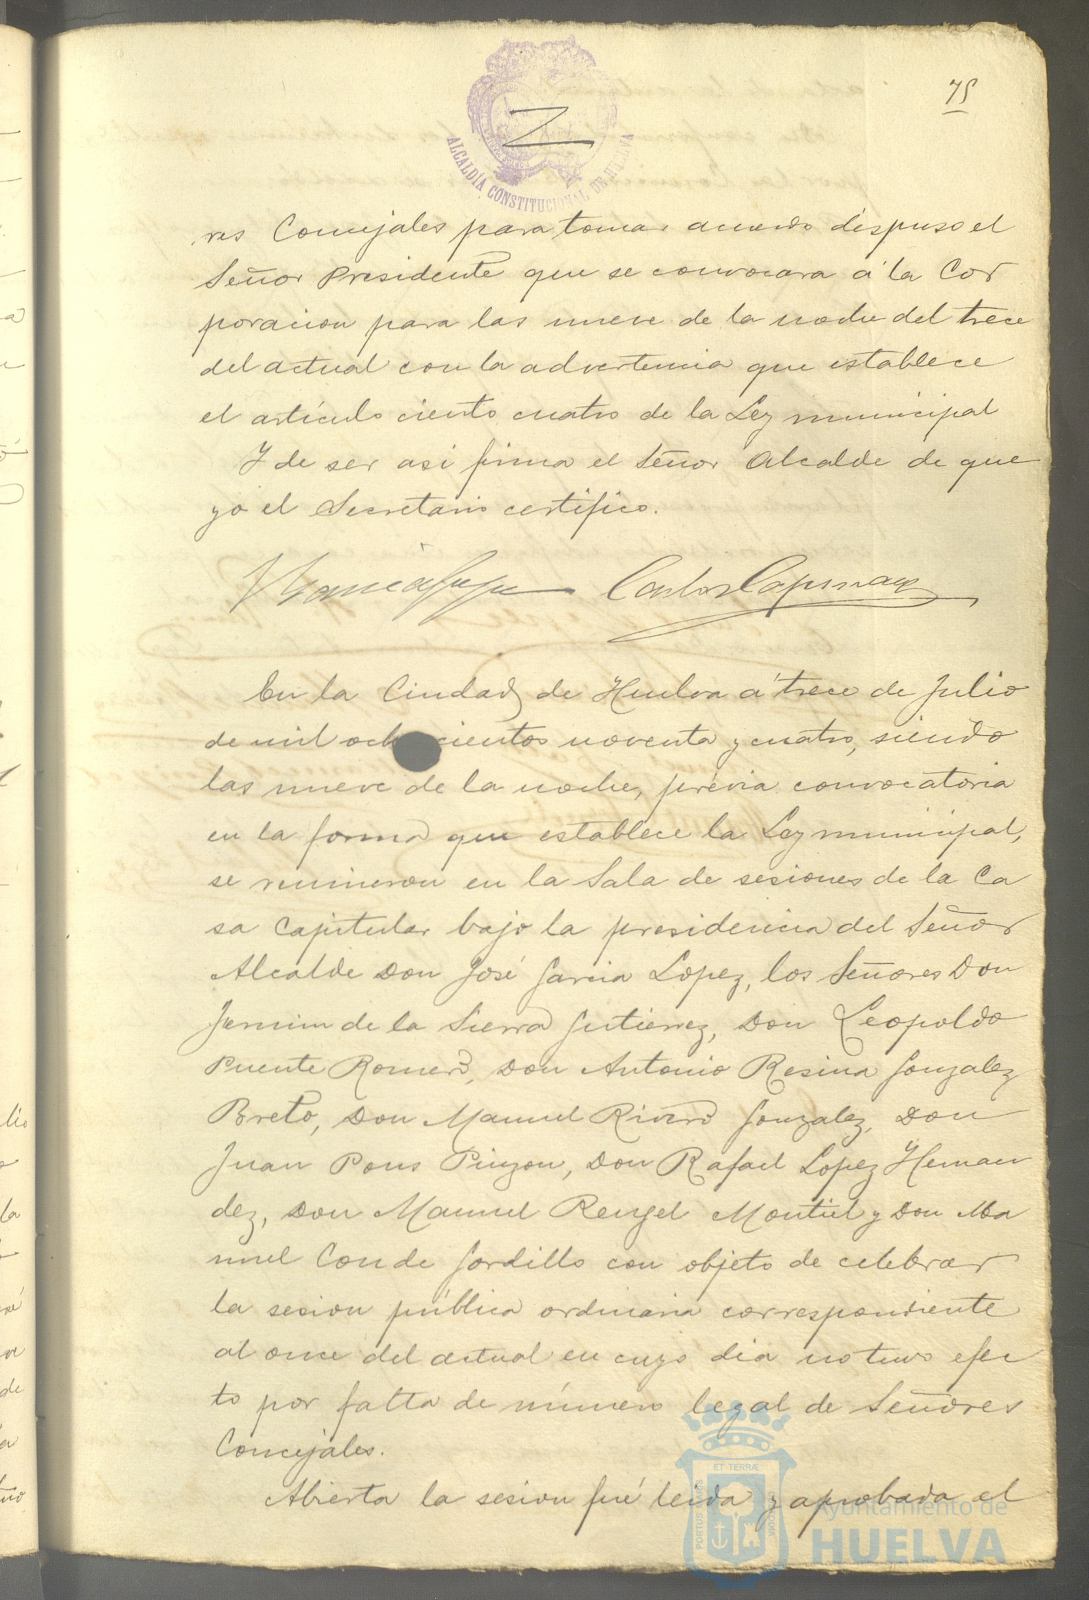 75
ALCALDÍA CONSTITUCIONAL DE HUELVA
res Concejales para tomar acuerdo dispuso el
Señor Presidente que se convocara á la Cor
poracion para las nueve de la noche del trece
del actual con la advertencia que establece
el artículo ciento cuatro de la Ley municipal
Y de ser asi firma el Señor Alcalde de que
yo el Secretario certifico.
Carlos
En la Ciudad de Huelva á trece de Julio
de mil ochocientos noventa y cuatro, siendo
las nueve de la noche, prévia convocatoria
en la forma que establece la Ley municipal,
se reunieron en la Sala de sesiones de la Ca
sa Capitular bajo la presidencia del Señor
Alcalde Don José Garcia Lopez, los Señores Don
Fermin de la Sierra Gutierrez, Don Leopoldo
Puente Romero, Don Antonio Resina Gonzalez
Breto, Don Manuel Rivero Gonzalez, Don
Juan Pons Pinzon, Don Rafael Lopez Hernan
dez, Don Manuel Rengel Montiel y Don Ma
nuel Conde Gordillo con objeto de celebrar
la sesion pública ordinaria correspondiente
al once del actual en cuyo dia no tuvo efec
to por falta de número legal de Señores
Concejales.
Abierta la sesion fué leida y aprobada el
PORTUS MARIS ET TERRÆ CUSTODIA
Ayuntamiento de
HUELVA